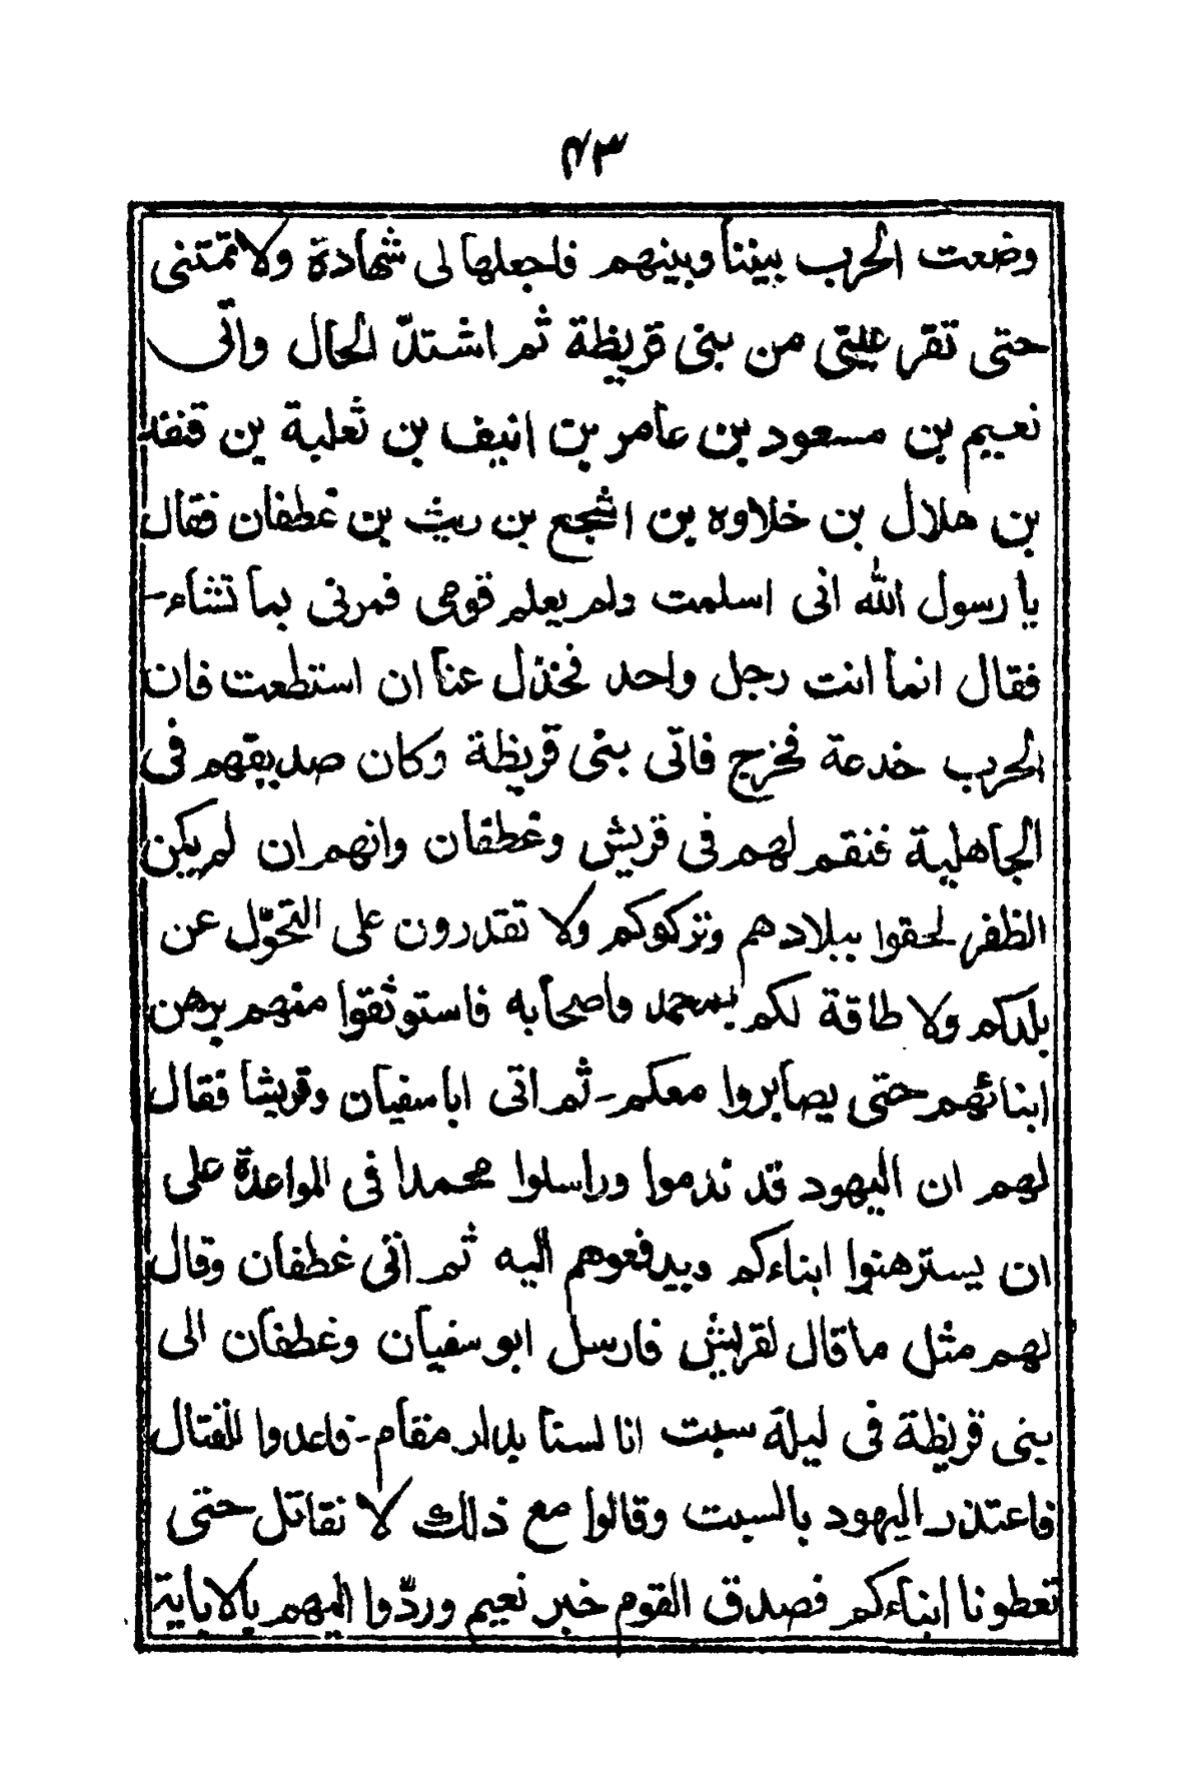 ٤٣
وضعت الحرب بيننا وبينهم فاجعلها لى شهادة ولا تمتنى
حتى تقر عينى من بنى قريظة ثم اشتدّ الحال واتى
نعيم بن مسعود بن عامر بن انيف بن ثعلبة بن قنفه
بن هلال بن خلاوه بن اشجع بن ريث بن غطفان فقال
يا رسول الله انى اسلمت ولم يعلم قومى فمرنى بما تشاء-
فقال انما انت رجل واحد فخذل عنا ان استطعت فان
الحرب خدعة فخرج فاتى بنى قريظة وكان صديقهم فى
الجاهلية فنقم لهم فى قريش وغطفان وانهم ان لم يكن
الظفر لحقوا ببلادهم وتركوكم ولا تقدرون على التحوّل عن
بلدكم ولا طاقة لكم بمحمد واصحابه فاستوثقوا منهم برهن
ابنائهم حتى يصابروا معكم- ثم اتى ابا سفيان وقريشا فقال
لهم ان اليهود قد ندموا وراسلوا محمدا فى المواعدة على
ان يسترهنوا ابناءكم ويدفعوهم اليه ثم اتى غطفان وقال
لهم مثل ما قال لقريش فارسل ابو سفيان وغطفان الى
بنى قريظة فى ليلة سبت انا لسنا بدار مقام- فاعدوا للقتال
فاعتذر اليهود بالسبت وقالوا مع ذلك لا نقاتل حتى
تعطونا ابناءكم فصدق القوم خبر نعيم وردّوا اليهم بالاباية